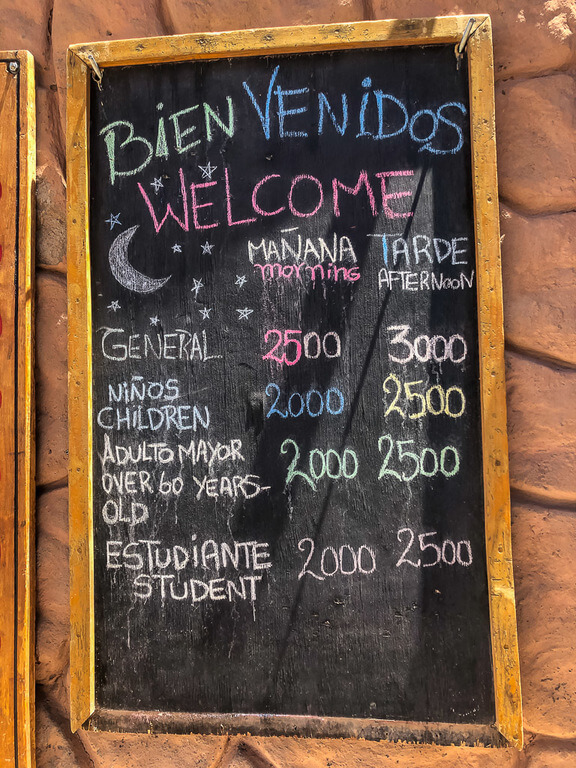 BIENVENIDOS
WELCOME
MAÑANA TARDE
morning AFTERNOON
GENERAL 2500 3000
NIÑOS
CHILDREN 2000 2500
ADULTO MAYOR
OVER 60 YEARS- 2000 2500
OLD
ESTUDIANTE 2000 2500
STUDENT